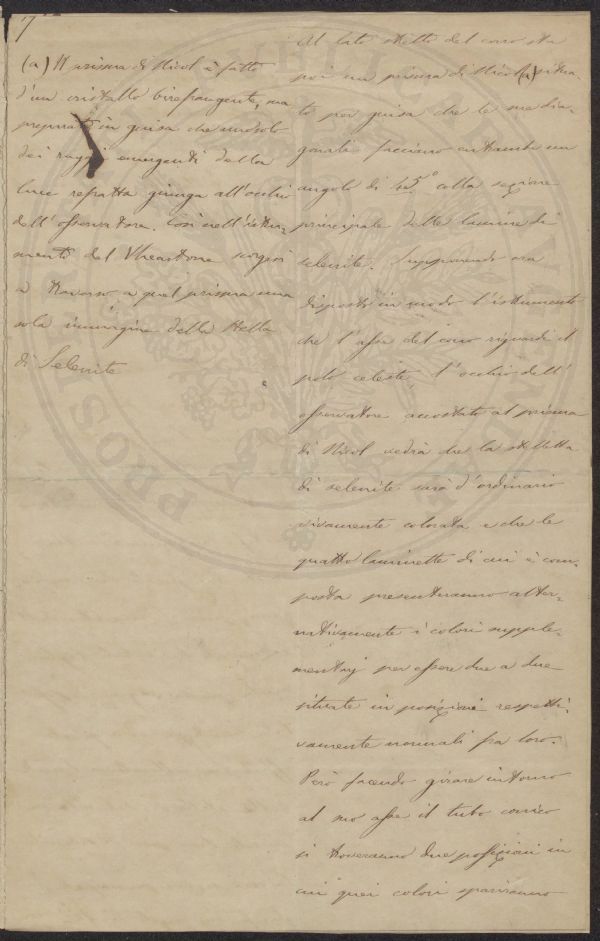 7
(a) Il prisma di Nicol è fatto
d'un cristallo birefrangente, ma
preparato in guisa che un solo
dei raggi emergenti della
luce refratta giunga all'occhio
dell'osservatore. Così nell'istru-
mento del Wheastone scorgesi
a traverso a quel prisma una
sola immagine della stella
di Selenite
Al lato stretto del cono sta
poi un prisma di Nicol (a) situa-
to per guisa che le sue dia-
gonali facciano entrambe un
angolo di 45° colla sezione
principale delle lamine di
selenite. Supponendo ora
disposto in modo l'istrumento
che l'asse del cono riguardi il
polo celeste, l'occhio dell'
osservatore accostato al prisma
di Nicol vedrà che la stelletta
di selenite sarà d'ordinario
vivamente colorata e che le
quattro laminette di cui è com-
posta presenteranno alter-
nativamente i colori supple-
mentarj per essere due a due
situate in posizioni respetti-
vamente normali fra loro.
Però facendo girare intorno
al suo asse il tubo conico
si troveranno due posizioni in
cui quei colori spariranno